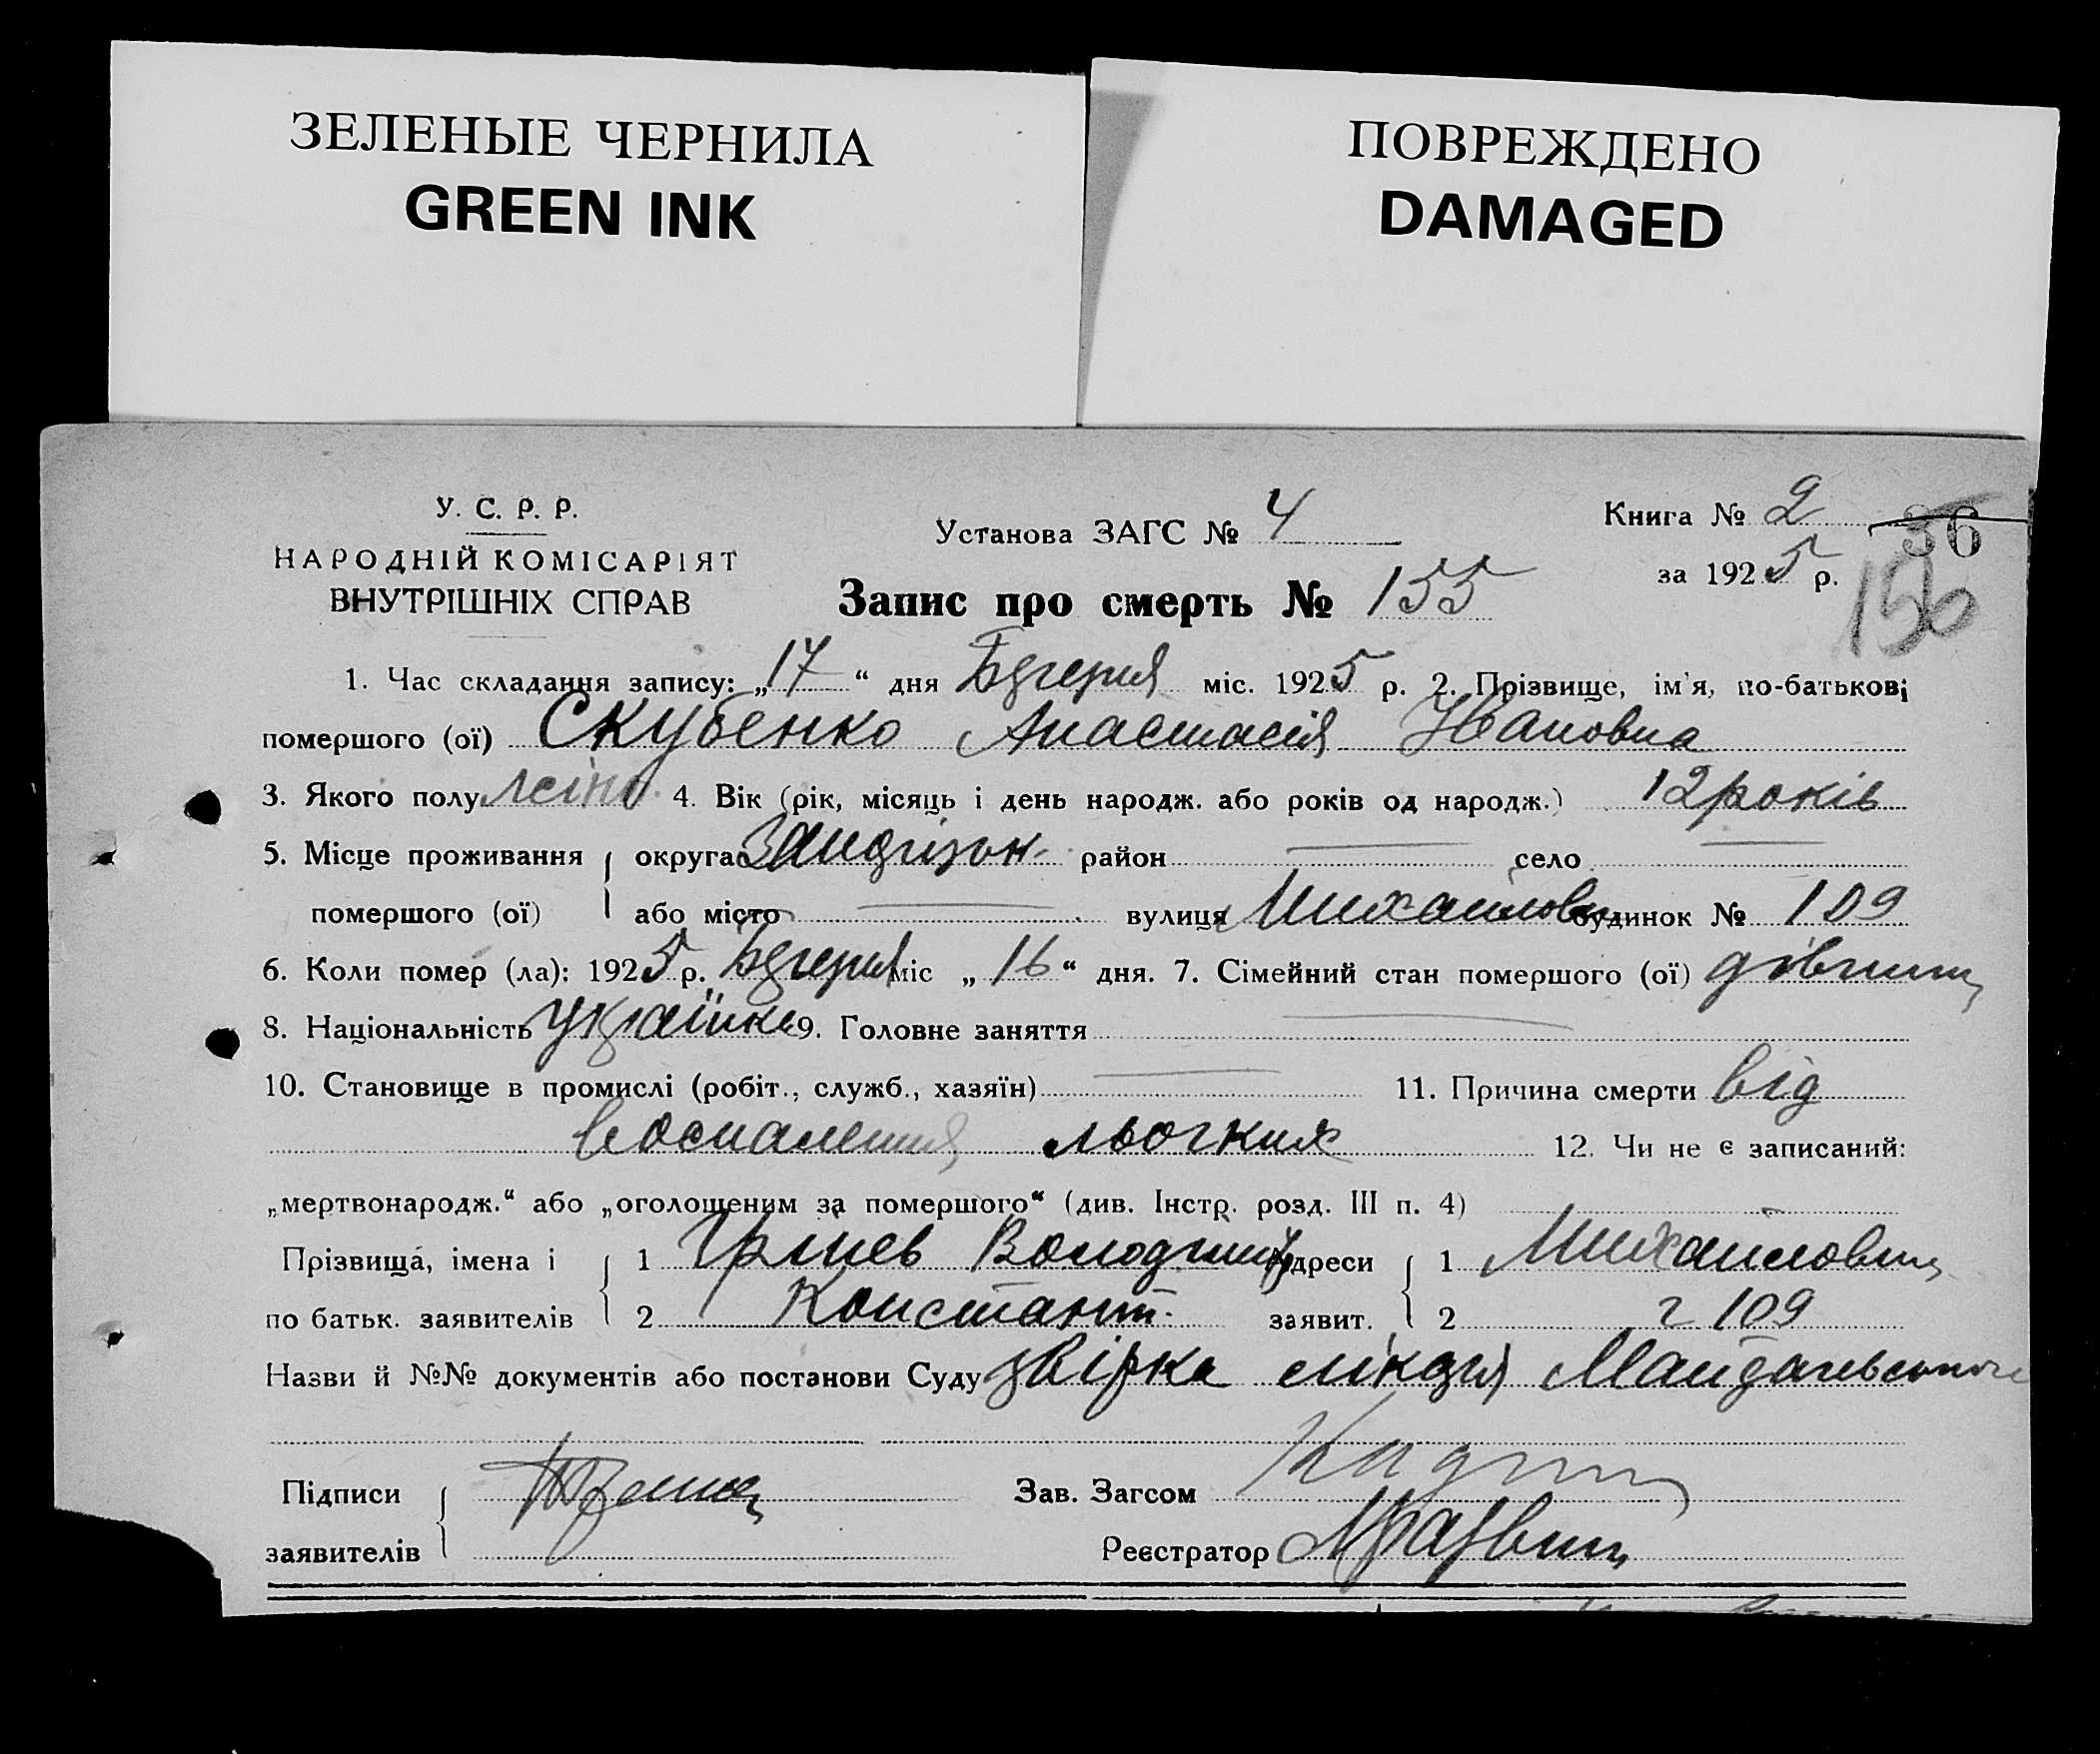 ЗЕЛЕНЫЕ ЧЕРНИЛА
GREEN INK
ПОВРЕЖДЕНО
DAMAGED
У. С. Р. Р.
НАРОДНІЙ КОМІСАРІЯТ
ВНУТРІШНІХ СПРАВ
Установа ЗАГС № 4
Книга № 2
36
за 1925 р.
150
Запис про смерть № 155
1. Час складання запису: „17“ дня міс. 1925 р. 2. Прізвище, ім'я, по-батькові
помершого (ої) Скубенко Анастасія Івановна
3. Якого полу жіно. 4. Вік (рік, місяць і день народж. або років од народж.) 12 років
5. Місце проживання округа район село
помершого (ої) або місто вулиця будинок № 109
6. Коли помер (ла): 1925 р. міс „16“ дня. 7. Сімейний стан помершого (ої)
8. Національність Українка 9. Головне заняття
10. Становище в промислі (робіт., служб., хазяїн) 11. Причина смерти від
воспаления льогких 12. Чи не є записаний:
„мертвонародж.“ або „оголошеним за помершого“ (див. Інстр. розд. III п. 4)
Прізвища, імена і 1 Адреси 1
по батьк. заявителів 2 Констант. заявит. 2 109
Назви й №№ документів або постанови Суду
Підписи
Зав. Загсом
заявителів
Реєстратор